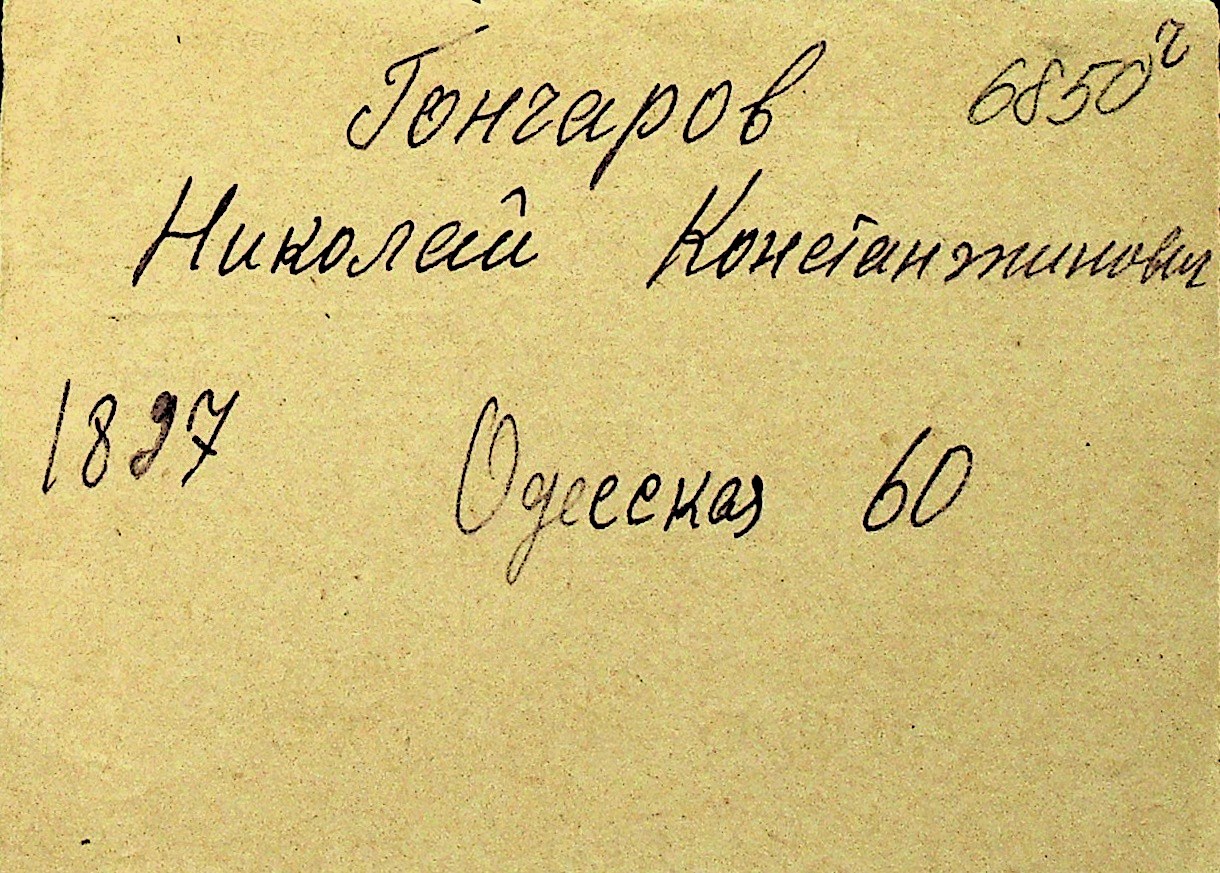 Гончаров 6850г
Николай Константинович
1897 Одесская 60